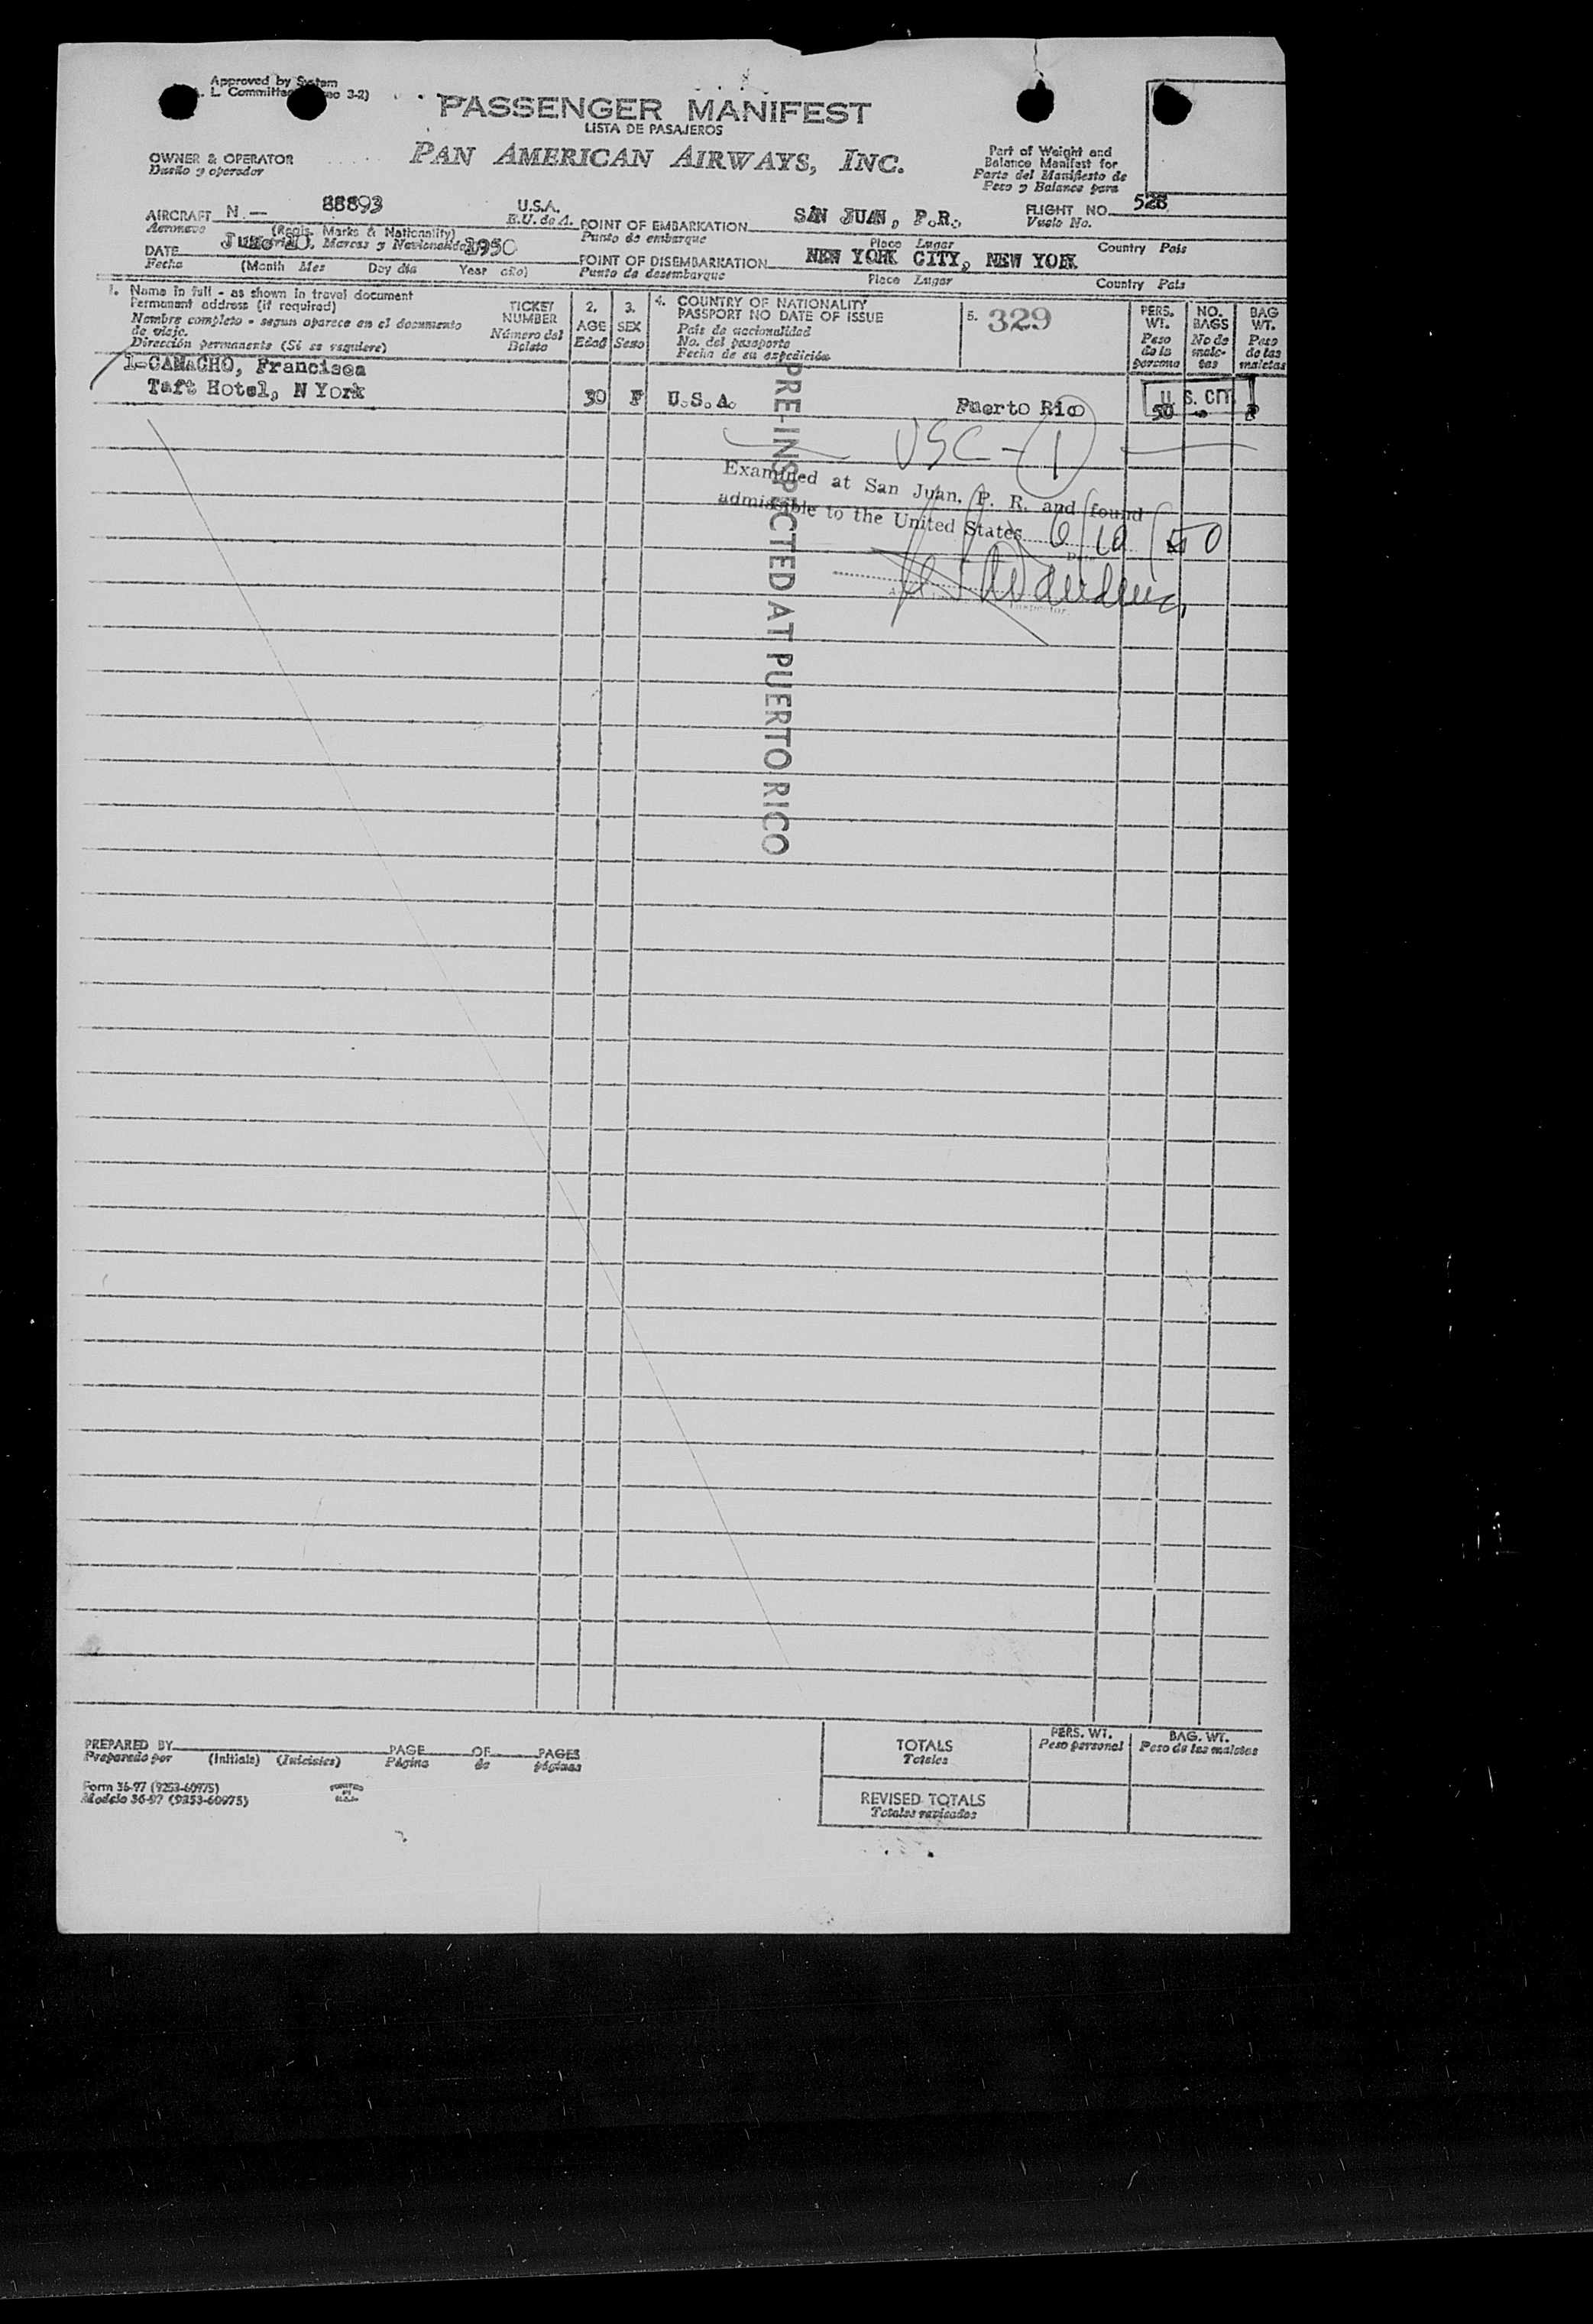 Approved by System
L. Committee 3-2)
PASSENGER MANIFEST
LISTA DE PASAJEROS
OWNER & OPERATOR
Dueño y operador
PAN AMERICAN AIRWAYS, INC.
Part of Weight and
Balance Manifest for
Parte del Manifiesto de
Peso y Balance para
AIRCRAFT N.— 88893 U.S.A.
Aeronave (Regis. Marks & Nationality) E.U. de A.
Marcas y Nacionalidad
POINT OF EMBARKATION SAN JUAN, P.R.,
Punto de embarque Place Lugar Country País
FLIGHT NO. 528
Vuelo No.
DATE June 10, 1950
Fecha (Month Mes Day día Year año)
POINT OF DISEMBARKATION NEW YORK CITY, NEW YORK
Punto de desembarque Place Lugar Country País
1. Name in full - as shown in travel document
Permanent address (if required)
Nombre completo - segun aparece en el documento
de viaje.
Dirección permanente (Si se requiere)
TICKET
NUMBER
Número del
Boleto
2.
AGE
Edad
3.
SEX
Sexo
4. COUNTRY OF NATIONALITY
PASSPORT NO DATE OF ISSUE
País de nacionalidad
No. del pasaporte
Fecha de su expedición
5. 329
PERS.
WT.
Peso
de la
persona
NO.
BAGS
No de
male-
tas
BAG
WT.
Peso
de las
maletas
1-CAMACHO, Francisca
Taft Hotel, N York 30 F U.S.A. Puerto Rico 50
U S. CIT
USC - 1
PRE-INSPECTED AT PUERTO RICO
Examined at San Juan, P. R. and found
admissible to the United States 6/10/50
Date
Inspector.
PREPARED BY PAGE OF PAGES
Preparado por (Initials) (Iniciales) Página de páginas
Form 36-97 (9253-60975)
Modelo 36-97 (9253-60975)
PRINTED
IN
U.S.A.
TOTALS
Totales
PERS. WT.
Peso personal
BAG. WT.
Peso de las maletas
REVISED TOTALS
Totales revisados